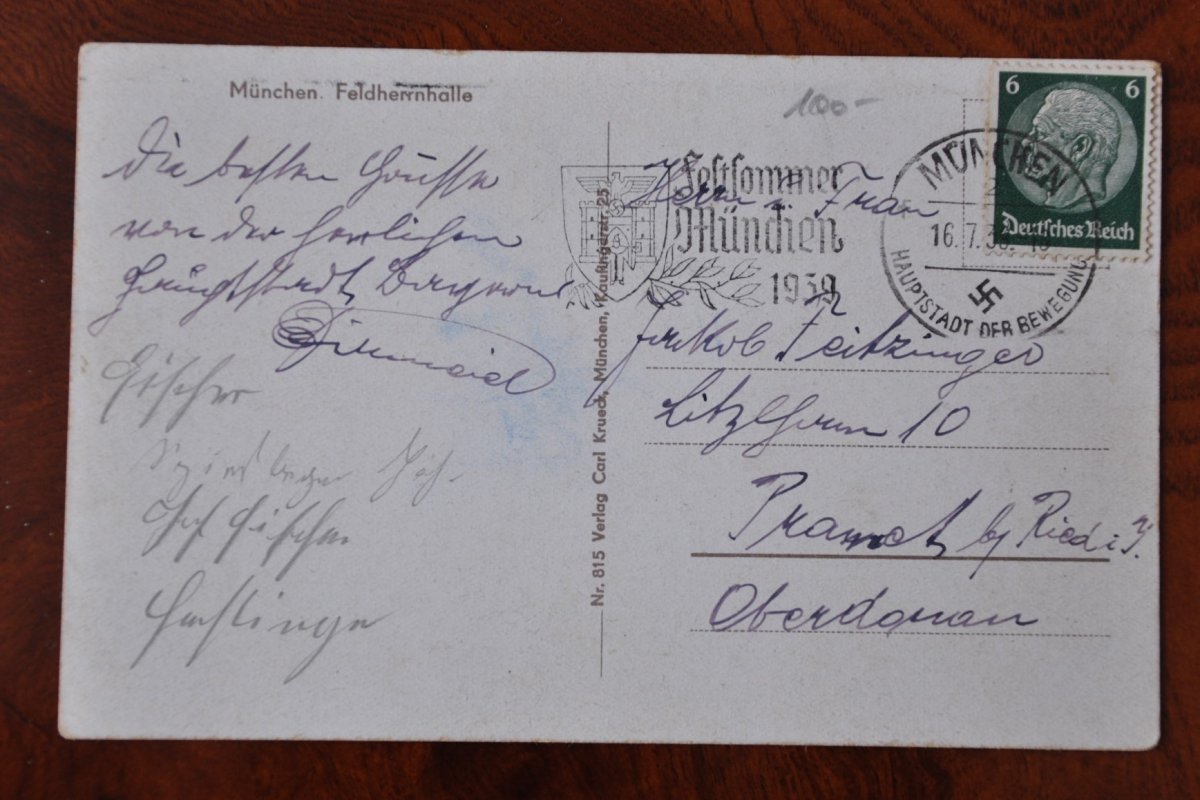 München. Feldherrnhalle
100-
Die besten Grüsse
von der herrlichen
Hauptstadt Bayerns
Fischer
Nr. 815 Verlag Carl Krueck, München, Kaufingerstr. 25
Festsommer
München
1939
MÜNCHEN
16.7.39
HAUPTSTADT DER BEWEGUNG
6 6
Deutsches Reich
Herrn u. Frau
Jakob Feitzinger
10
Pramet by Ried i. I.
Oberdonau